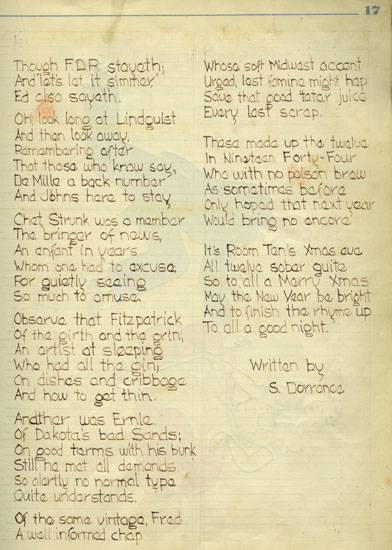 17
Though F.D.R. stayeth;
And "let's let it simmer,"
Ed also sayeth.
Oh look long at Lindquist
And then look away,
Remembering after
That those who know say,
De Mille a back number
And Johns here to stay
Chet Strunk was a member
The bringer of news,
An enfant in years
Whom one had to excuse,
For quietly seeing
So much to amuse.
Observe that Fitzpatrick
Of the girth and the grin;
An artist at sleeping
Who had all the gin;
On dishes and cribbage
And how to get thin.
Another was Ernie
Of Dakota's bad Sands;
On good terms with his bunk
Still he met all demands
So alertly no normal type
Quite understands.
Of the same vintage, Fred
A well informed chap
Whose soft Midwest accent
Urged, lest famine might hap
Save that good tater juice
Every last scrap.
These made up the twelve
In Nineteen Forty-Four
Who with no poison brew
As sometimes before
Only hoped that next year
Would bring no encore
It's Room Ten's Xmas eve
All twelve sober quite
So to all a Merry Xmas
May the New Year be bright
And to finish the rhyme up
To all a good night.
Written by
S. Dorrance